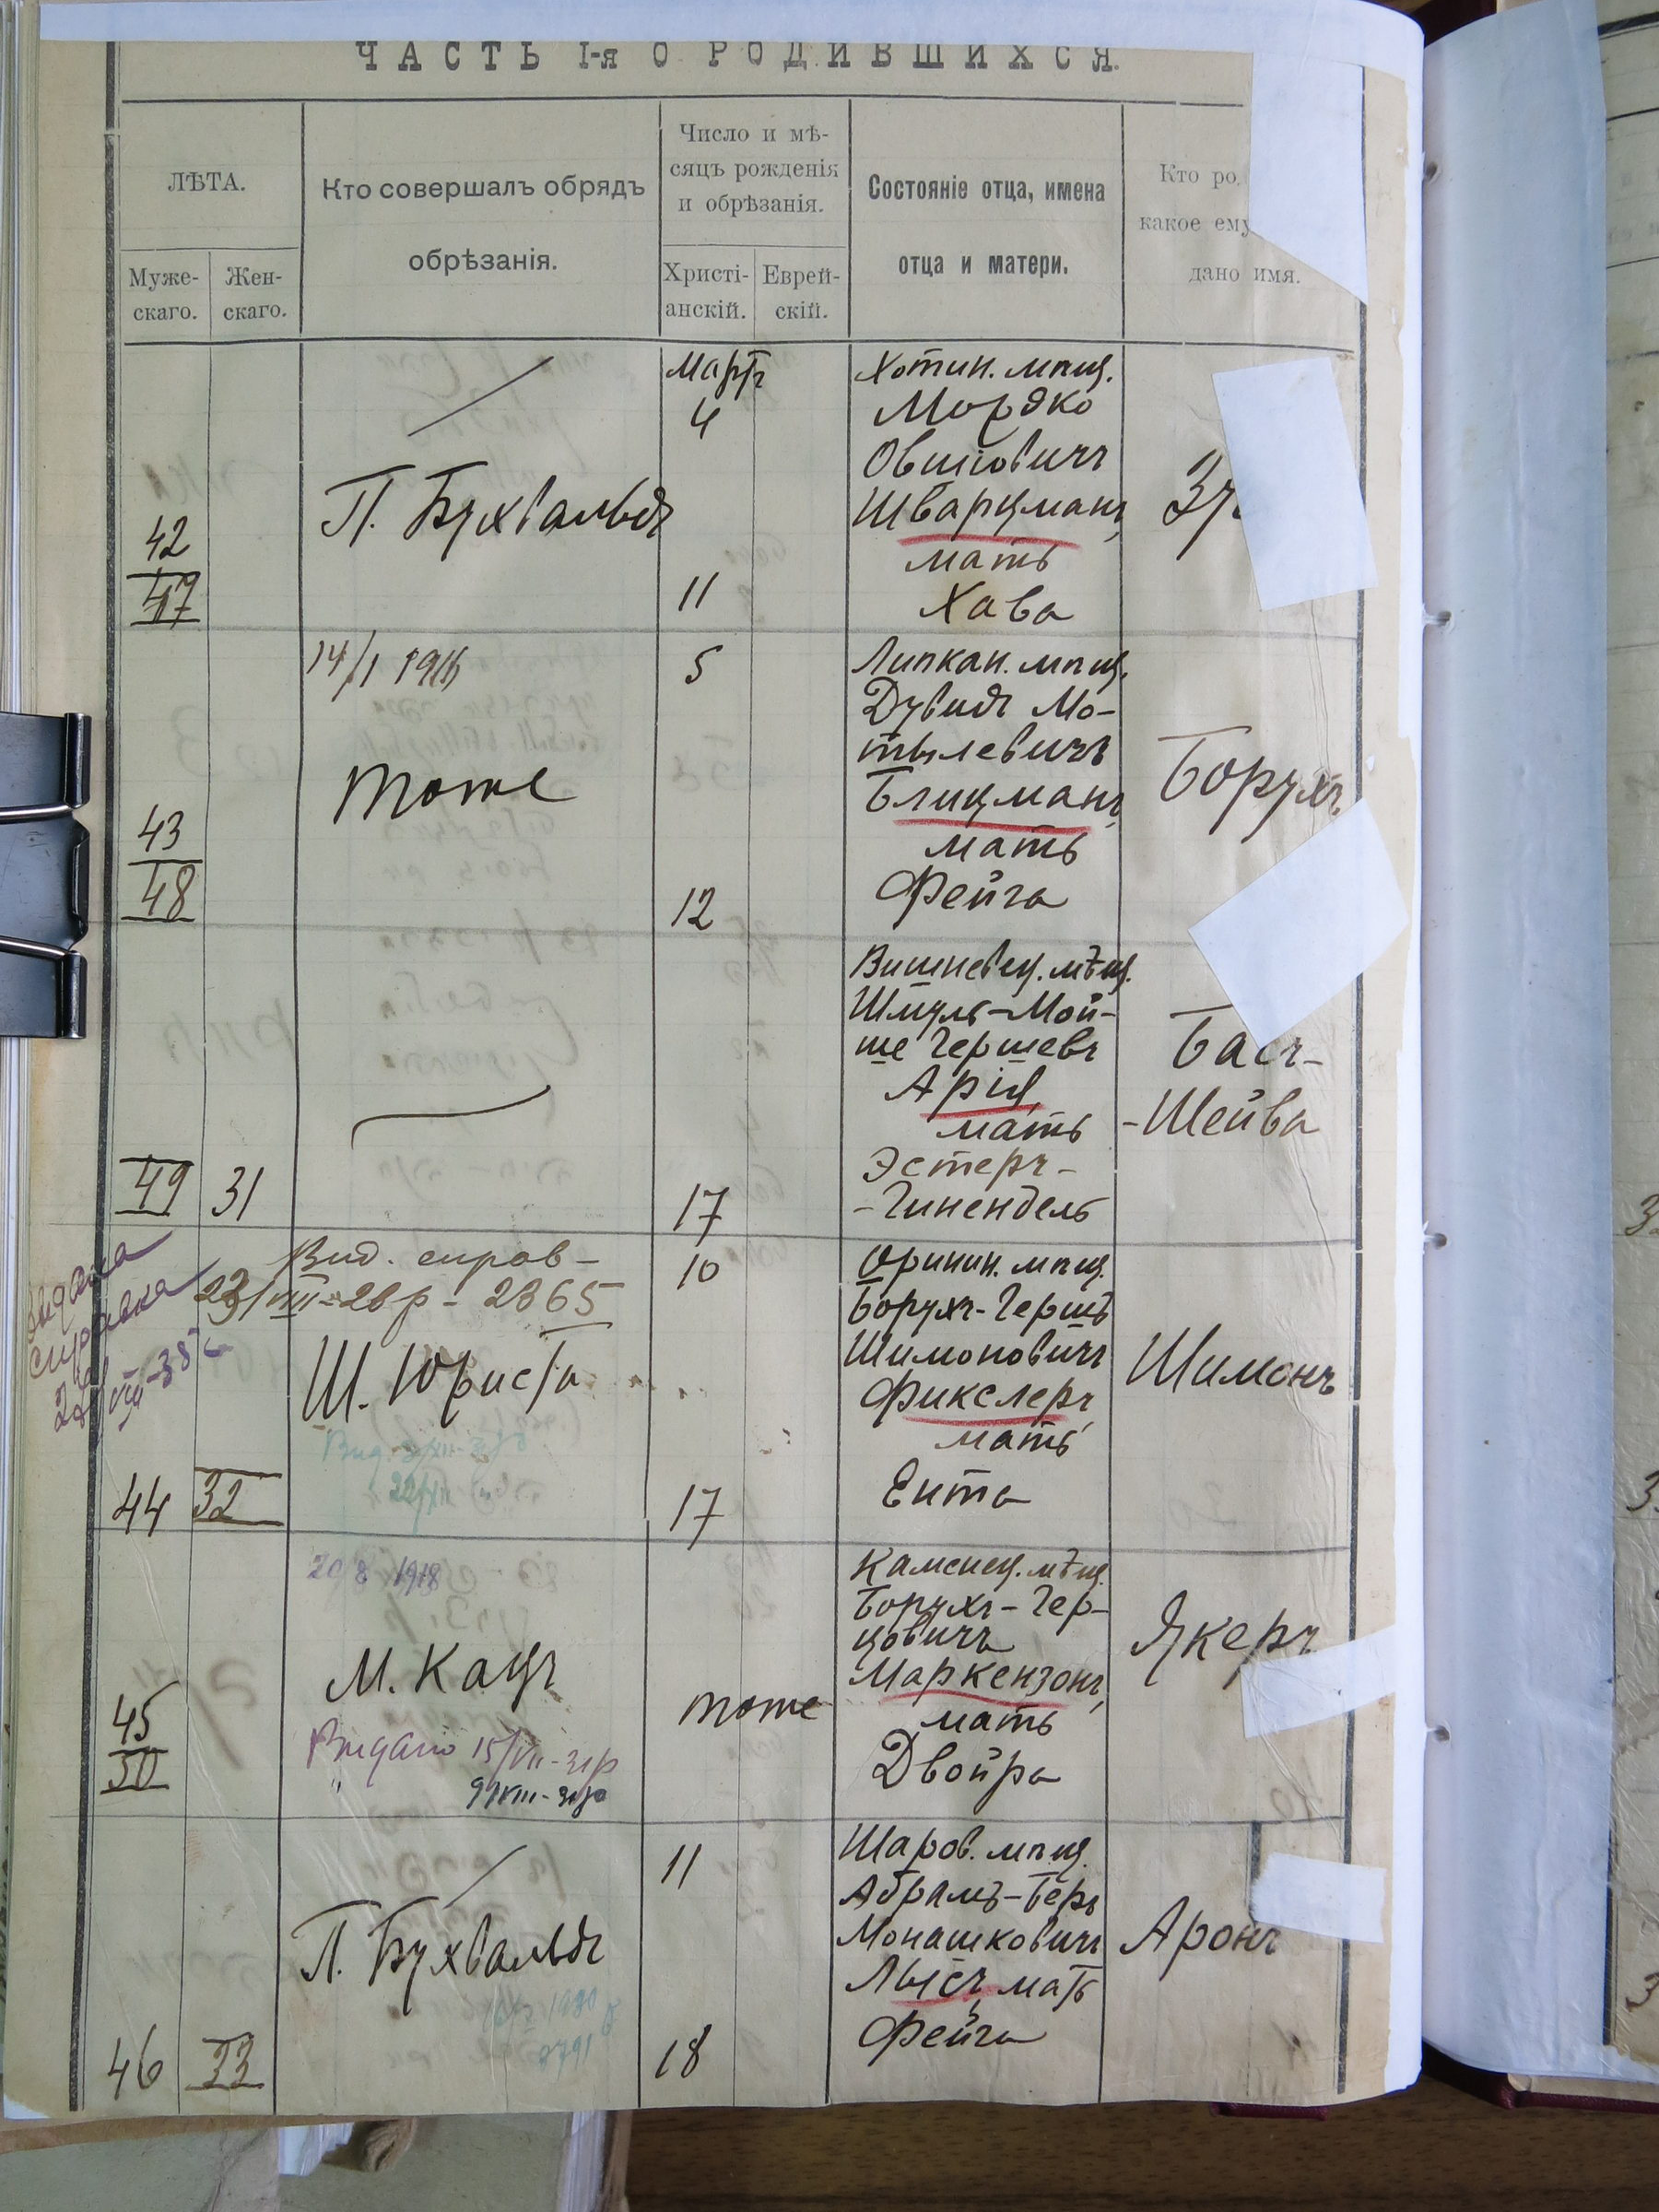 ЧАСТЬ I-я О РОДИВШИХСЯ.
ЛѢТА.
Муже-
скаго.
Жен-
скаго.
Кто совершалъ обрядъ
обрѣзанія.
Число и мѣ-
сяцъ рожденія
и обрѣзанія.
Христі-
анскій.
Еврей-
скій.
Состояніе отца, имена
отца и матери.
Кто ро
какое ему
дано имя.
42
47
П. Бухвальдъ
Мартъ
4
11
Хотин. мпщ.
Мордко
Овшіовичъ
Шварцманъ,
мать
Хава
43
48
14/I 1916
тоже
5
12
Липкан. мпщ.
Дувидъ Мо-
тылевичъ
Блицманъ,
мать
Фейга
Борухъ
49
31
17
Вишневец. мѣщ.
Шмуль-Мой-
ше Гершевъ
Арія,
мать
Эстеръ-
-Гинендель
Басъ-
-Шейва
видана
справка
44
32
Вид. справ-
23/VIII-28р - 2365
Ш. Юриста
10
17
Оринин. мпщ.
Борухъ-Гершъ
Шимоновичъ
Фикслеръ,
мать
Ента
Шимонъ
45
50
20 8 1918
М. Кацъ
Видано 15/VII-31р
" 9/VIII-31р
тоже
Каменец. мѣщ.
Борухъ-Гер-
цовичъ
Маркензонъ,
мать
Двойра
Якеръ
46
33
П. Бухвальдъ
11
18
Шаров. мпщ.
Абрамъ-Беръ
Монашковичъ
Лысъ, мать
Фейга
Аронъ